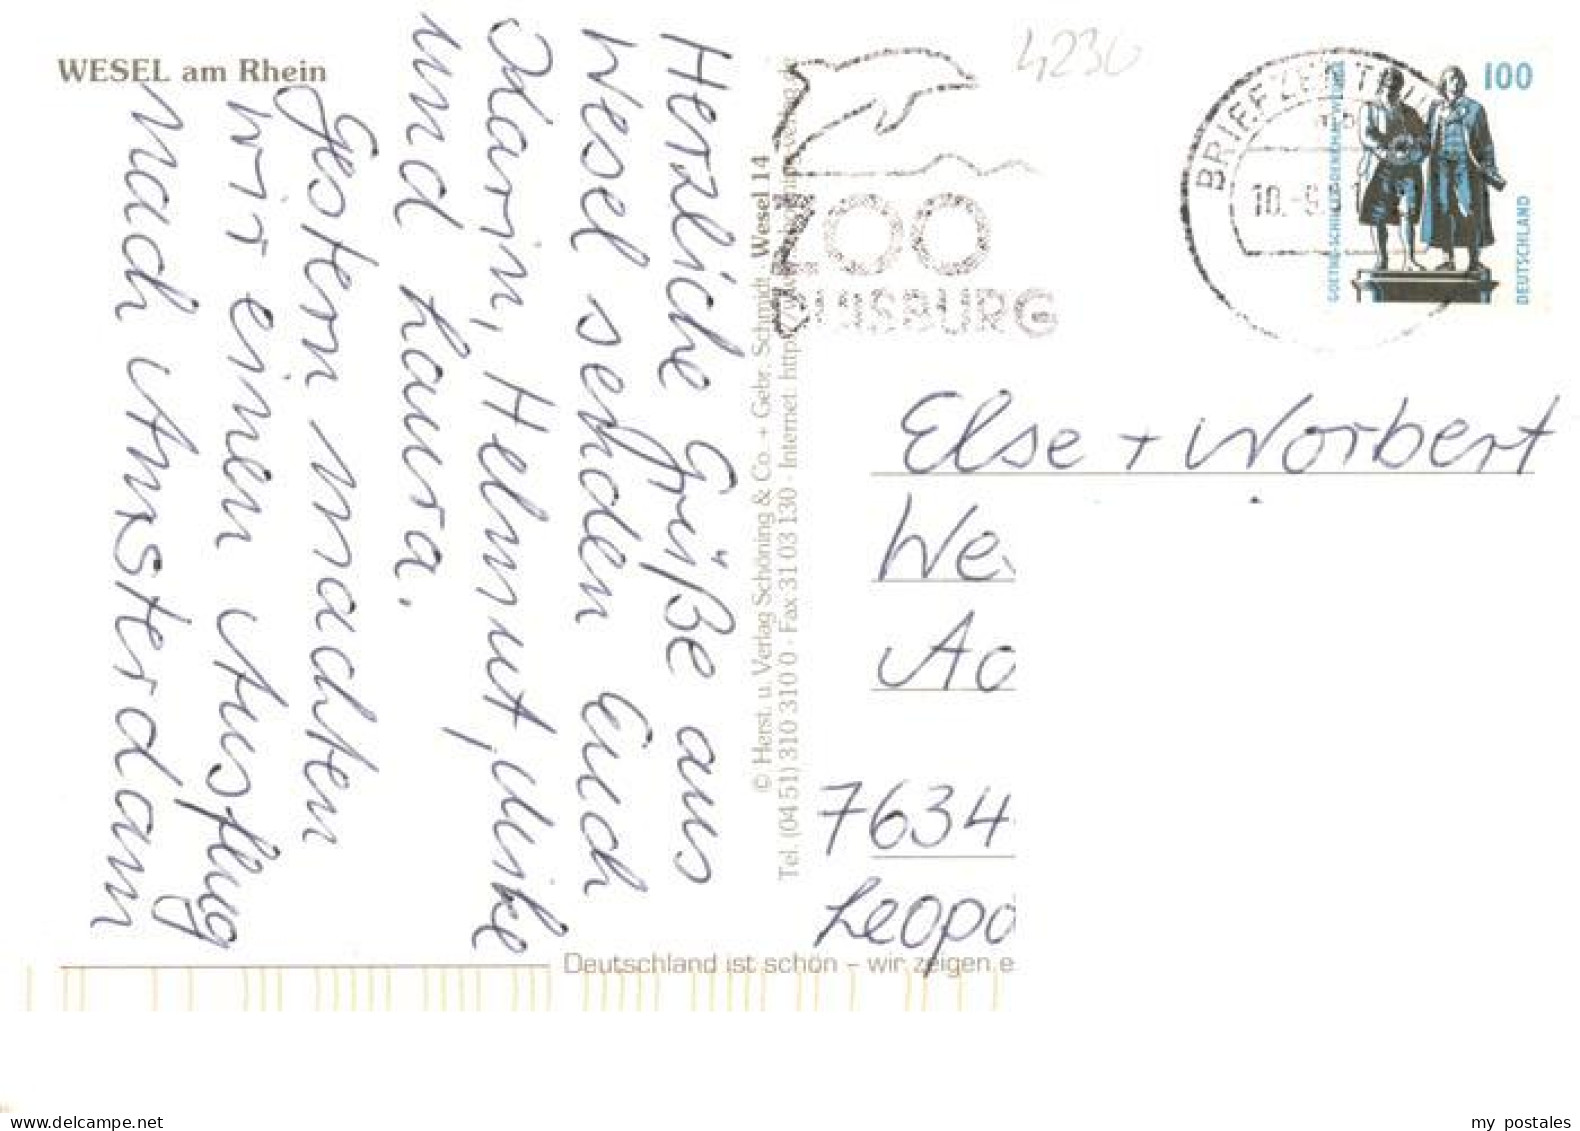 WESEL am Rhein
Herzliche Grüße aus
Wesel senden Euch
Marin, Helmut, Ulrike
und Laura.
Gestern machten
wir einen Ausflug
nach Amsterdam
© Herst. u. Verlag Schöning & Co. + Gebr. Schmidt · Wesel 14
Tel. (04 51) 310 310 0 · Fax 31 03 130 · Internet: http://www.schoening-verlag.de
4230
ZOO
DUISBURG
BRIEFZENTRUM
10.-9.
100
GOETHE-SCHILLER-DENKMAL WEIMAR
DEUTSCHLAND
Else + Norbert
We
Ac
7634
Leopo
Deutschland ist schön – wir zeigen e
www.delcampe.net
my_postales